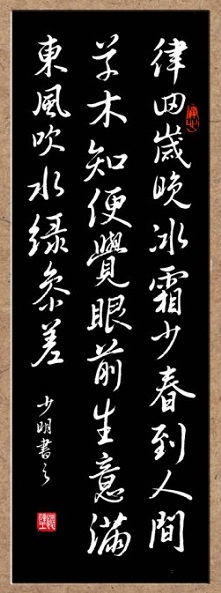 律回歲晚冰霜少春到人間
草木知便覺眼前生意滿
東風吹水綠參差
少明書之